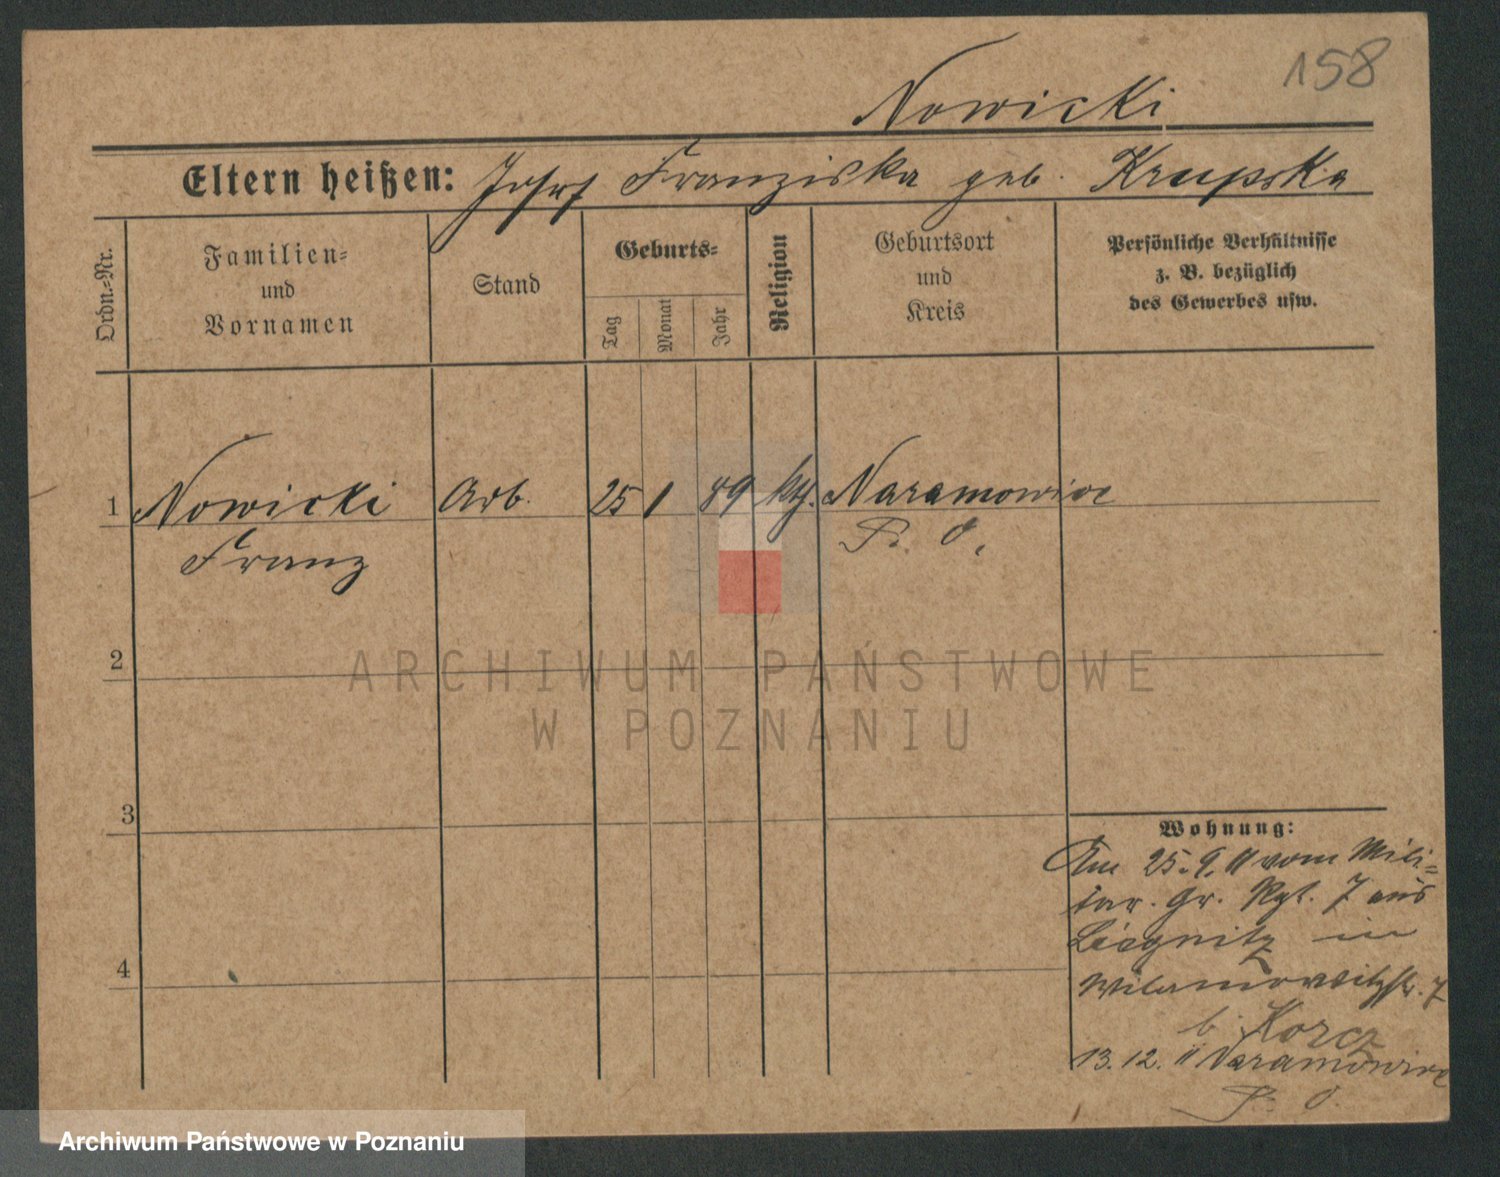 158
Nowicki
Eltern heißen: Josef Franziska geb. Krupska
Ordn.-Nr.
Familien-
und
Vornamen
Stand
Geburts-
Tag
Monat
Jahr
Religion
Geburtsort
und
Kreis
Persönliche Verhältnisse
z. B. bezüglich
des Gewerbes usw.
1 Nowicki Arb. 25 1 89 kth. Naramowice
Franz P. O.
2
3
4
Wohnung:
Am 25.9.11 vom Mili-
tär. Gr. Rgt. 7 aus
Liegnitz in
Wilamowitzstr. 7
b. Korcz
13.12.11 Naramowice
P. O.
ARCHIWUM PAŃSTWOWE
W POZNANIU
Archiwum Państwowe w Poznaniu